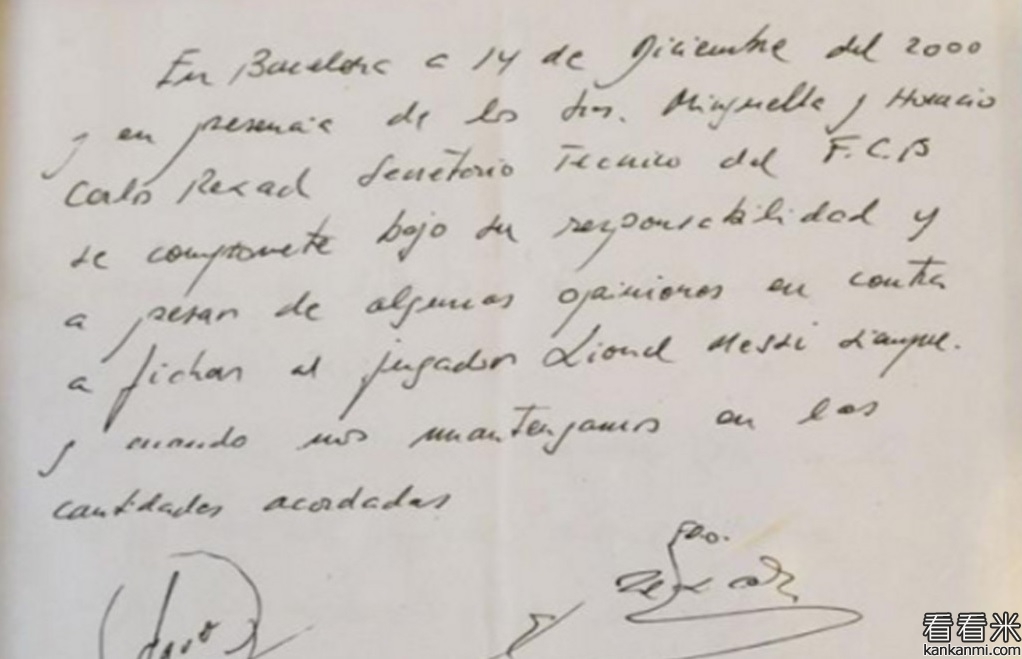 En Barcelona a 14 de Diciembre del 2000
y en presencia de los Sres. Minguella y Horacio
Carlos Rexach Secretario Tecnico del F.C.B
se compromete bajo su responsabilidad y
a pesar de algunas opiniones en contra
a fichar al jugador Lionel Messi siempre.
y cuando nos mantengamos en las
cantidades acordadas
Fdo.
看看米
kankanmi.com